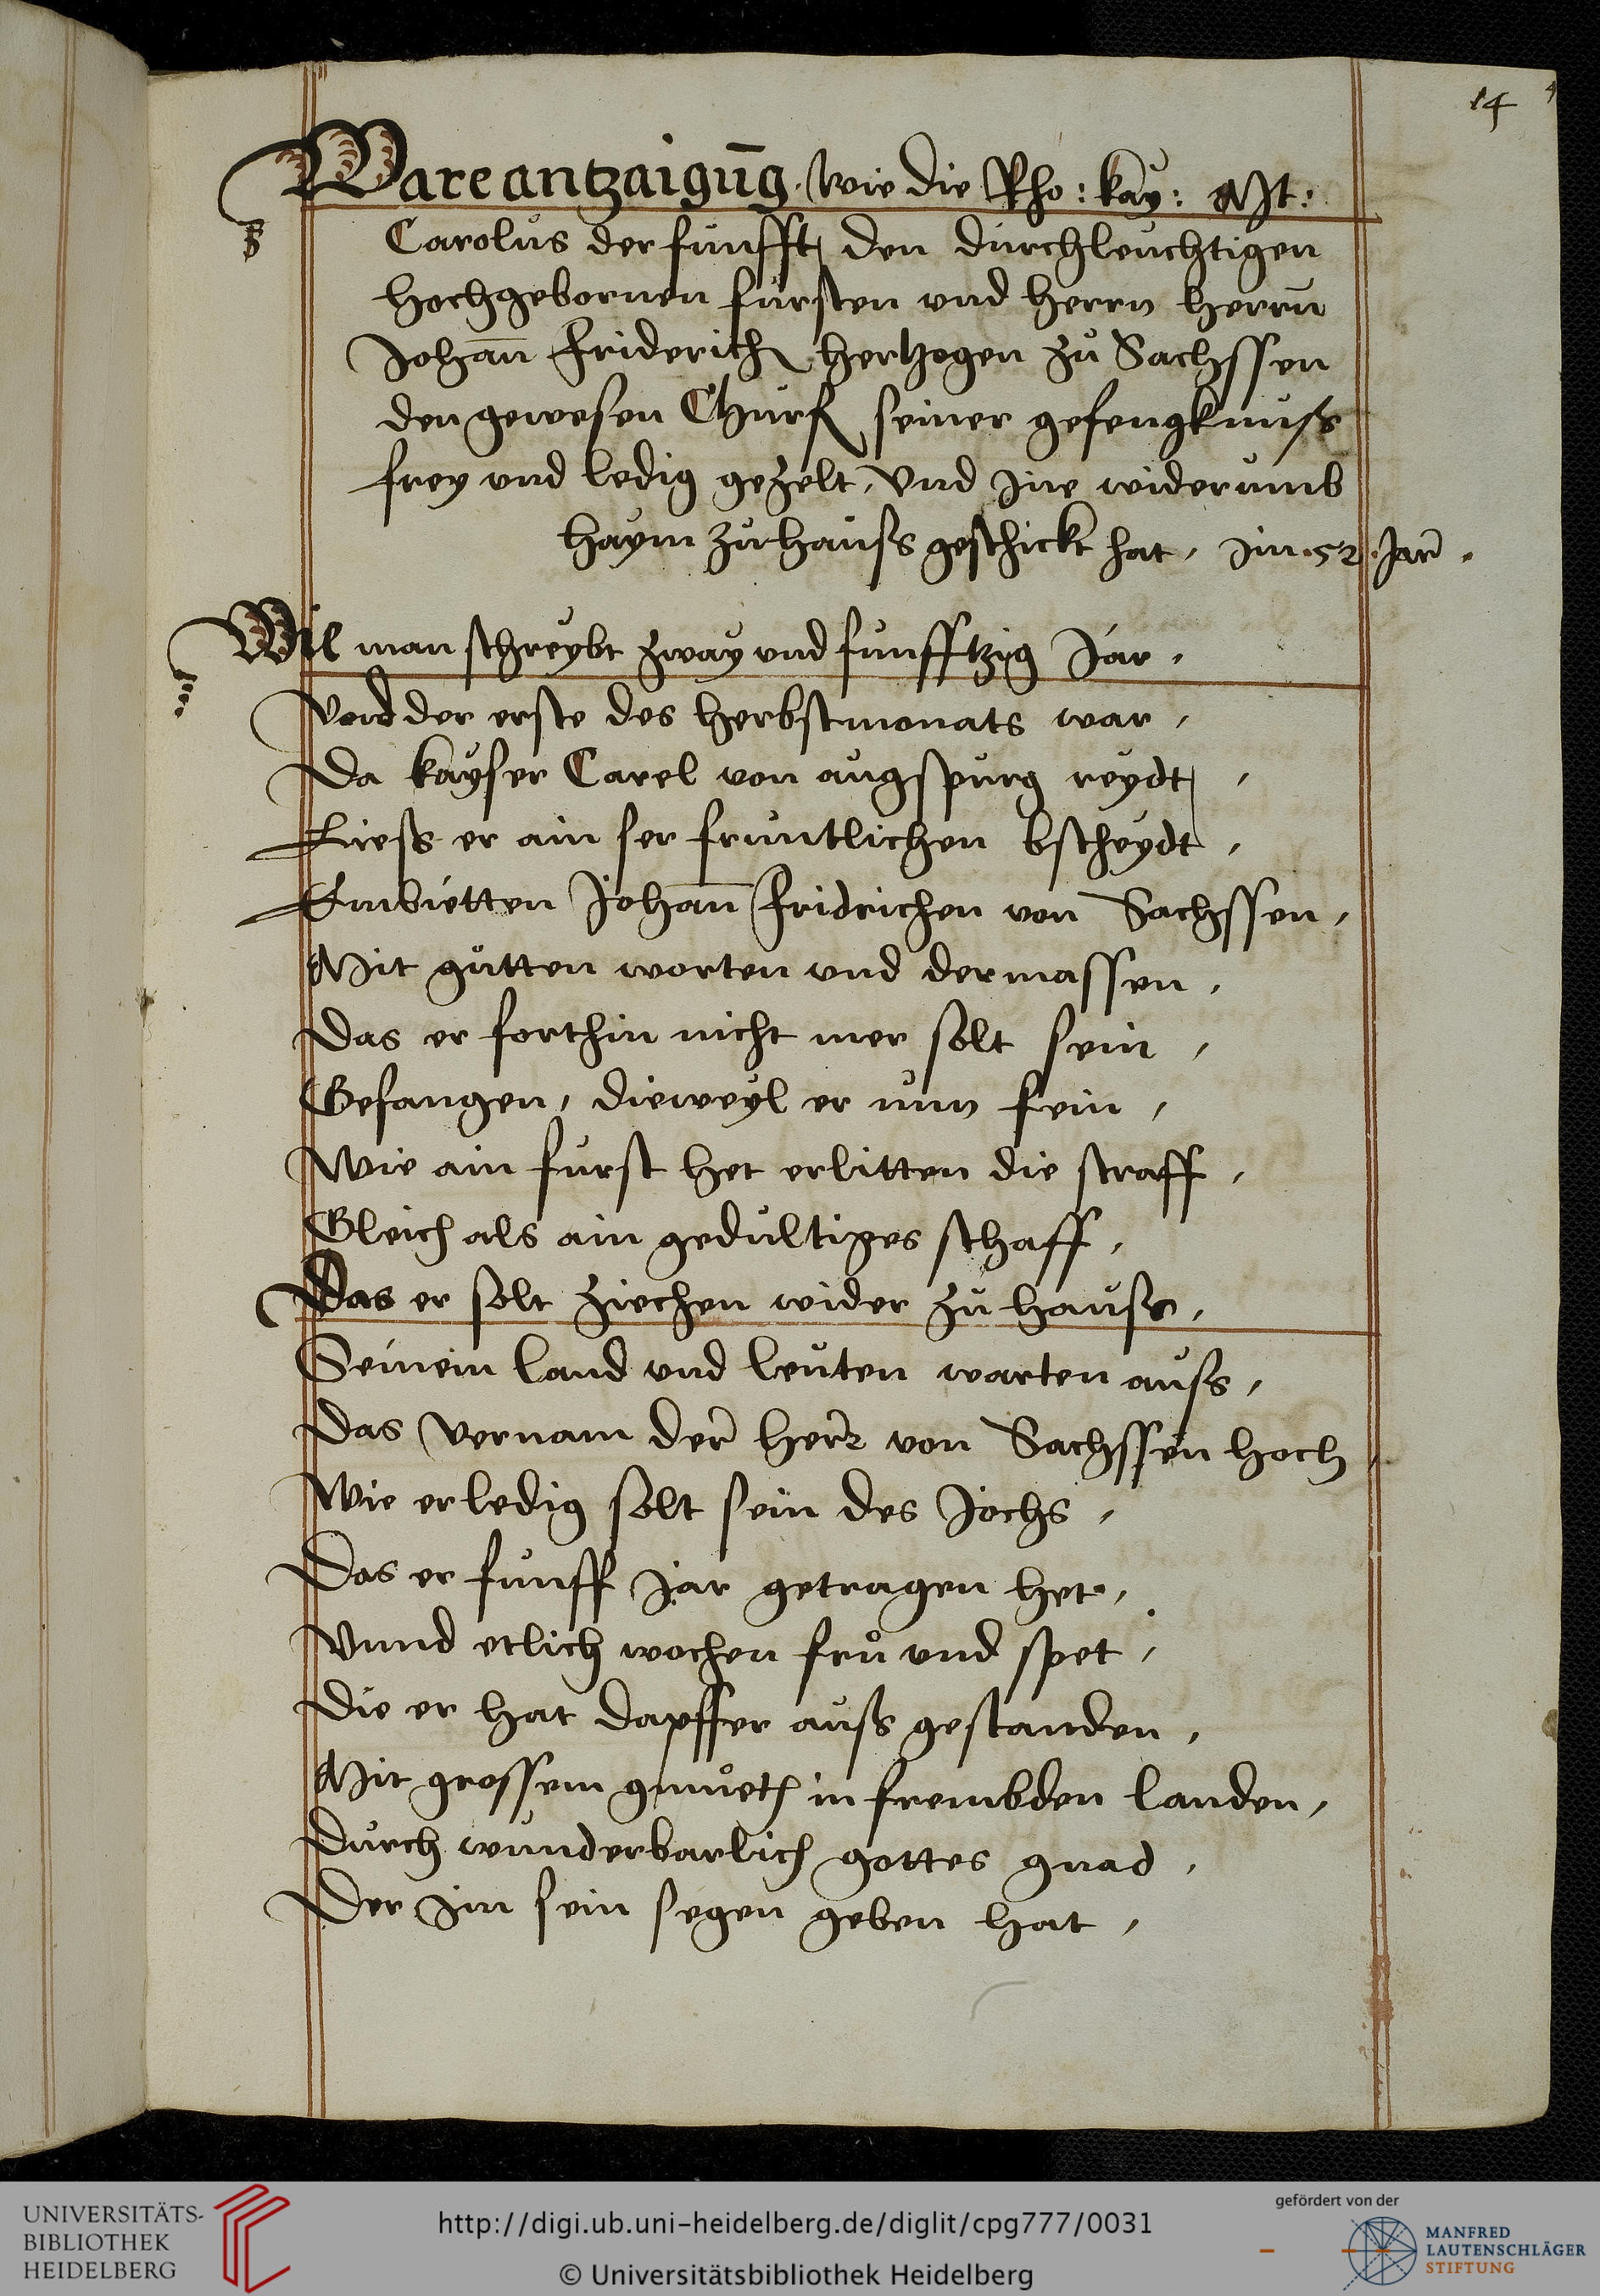 14
Ware antzaigūg. Wie die Rho: kay: Mt:
Carolus der funfft den durchleuchtigen
hochgebornen fursten vnd herrn herrn
Johan̄ Friderich hertzogen zů Sachssen
den gewesen Churf seiner gefengknuss
frey vnd ledig gezelt, Vnd jne widerumb
haym zu hauss geschickt hat, im .52. Jar.
Wil man schreybt zway vnd funfftzig Jar,
Vnd der erste des herbstmonats war,
Da kayser Carel von augspurg reydt,
Liess er ain ser fruntlichen bscheydt,
Embietten Johan̄ Fridrichen von Sachssen,
Mit gůtten worten vnd dermassen,
Das er forthin nicht mer solt sein,
Gefangen, dieweyl er nun fein,
Wie ain furst het erlitten die straff,
Gleich als ain gedultiges schaff,
Das er solt ziechen wider zu hauss,
Seinem land vnd leuten warten auss,
Das vernam der herr von Sachssen hoch,
Wie er ledig solt sein des Jochs,
Das er funff jar getragen het,
Vnnd etlich wochen frů vnd spet,
Die er hat dapffer auss gestanden,
Mit grossem gmůeth in frembden landen,
Durch wunderbarlich gottes gnad,
Der im sein segen geben hat,
UNIVERSITÄTS-
BIBLIOTHEK
HEIDELBERG
http://digi.ub.uni-heidelberg.de/diglit/cpg777/0031
© Universitätsbibliothek Heidelberg
gefördert von der
MANFRED
LAUTENSCHLÄGER
STIFTUNG